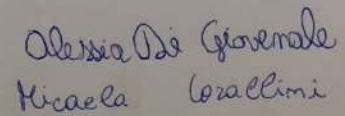 Alessia Di Giovenale
Micaela Corallini